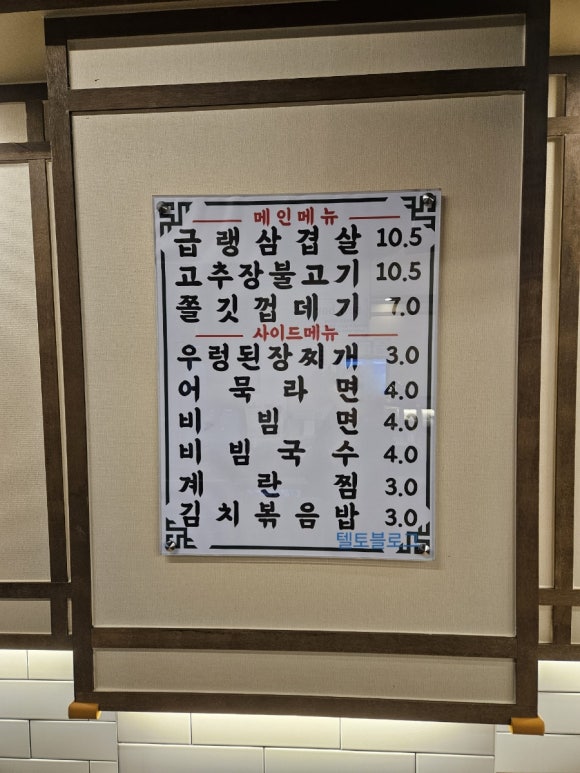 메인메뉴
급랭삼겹살 10.5
고추장불고기 10.5
쫄깃껍데기 7.0
사이드메뉴
우렁된장찌개 3.0
어묵라면 4.0
비빔면 4.0
비빔국수 4.0
계란찜 3.0
김치볶음밥 3.0
텔토블로그